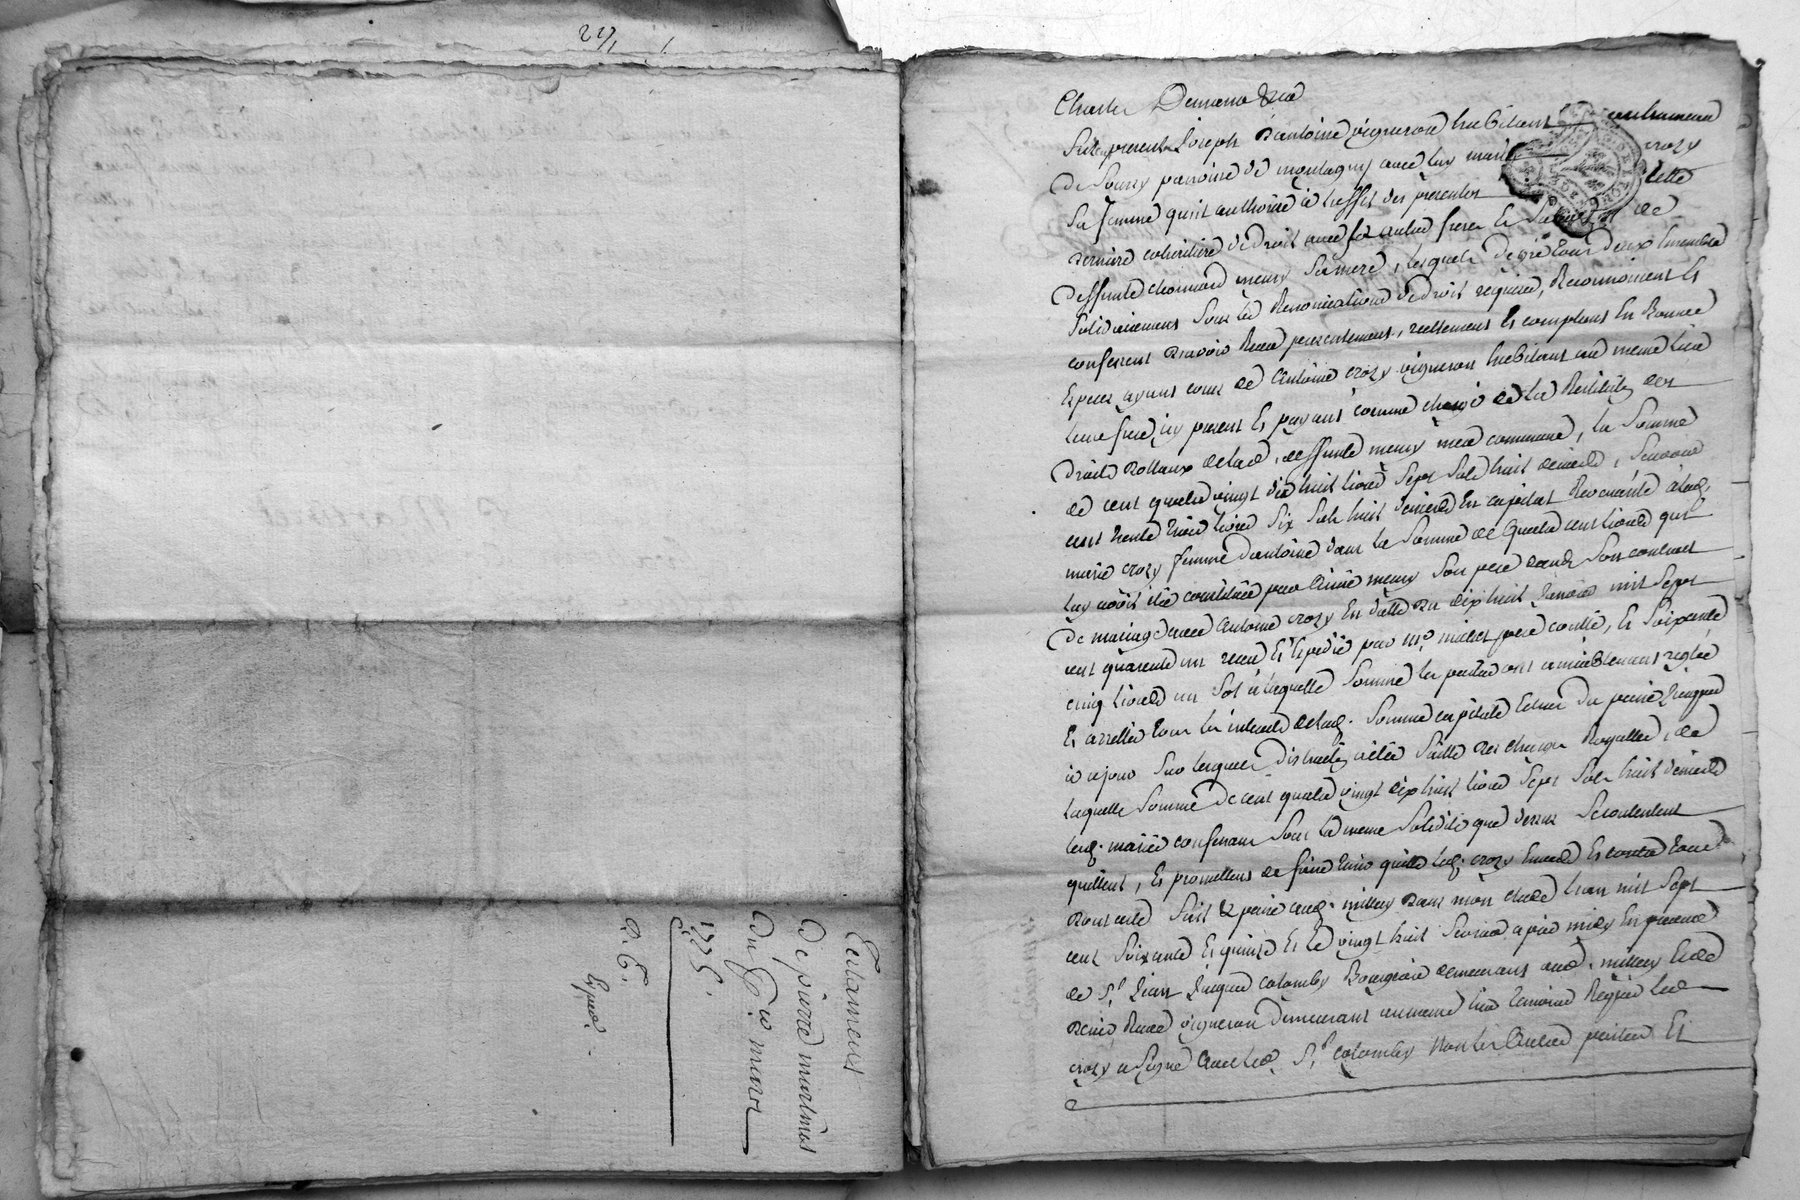 221
Testament
de pierre martinot
du 6e mars
1775.
D. C.
Exped.
furent presents Joseph Dantoine vigneron habitant au hameau
de Soussy parroisse de montagny avec luy marie crozy
sa femme qu'il authorise à l'effet des presentes cette
derniere cohéritière de droit avec ses autres freres et de
deffunte meury sa mere, lesquels de gré tous deux ensemble
solidairement sous les Renonciations de droit requises, Reconnoissent et
confessent d'avoir Receu presentement, reellement et comptant En bonnes
Especes ayant cours de Antoine crozy vigneron habitant au meme lieu
leur frere icy present et payant comme chargé de la des
droits dottaux de lad. deffunte meury mere commune, la somme
de cent quatre vingt dix huit livres sept sols huit deniers, scavoir
cent trente trois livres six sols huit deniers En capital à lad.
marie crozy femme dantoine dans la somme de quatre cent livres qui
luy avoit été constituée par meury son pere dans son contract
de mariage avec Antoine crozy En datte du dix huit janvier mil sept
cent quarante un receu et Expedié par me. pere, et soixante
cinq livres un sol à laquelle somme les parties ont amiablement reglée
et arrettée tous les interets de lad. somme capitale
à ce jour sur lesquels distraction a été faitte des charges Royalles, de
laquelle somme de cent quatre vingt dix huit livres sept sols huit deniers
led. mariés confessant sous la meme solidité que dessus se contentent
quittent, et promettent de faire tenir quitte led. crozy Envers et contre tous
dont acte fait et passé aud. millery dans mon étude l'an mil sept
cent soixante et quinze et le vingt huit fevrier après midy En presence
de Sr. Jean Jacques colomby Bourgeois demeurant aud. millery et de
vigneron demeurant au meme lieu temoins Requis led.
crozy a signé avec led. Sr. colomby non les autres parties et